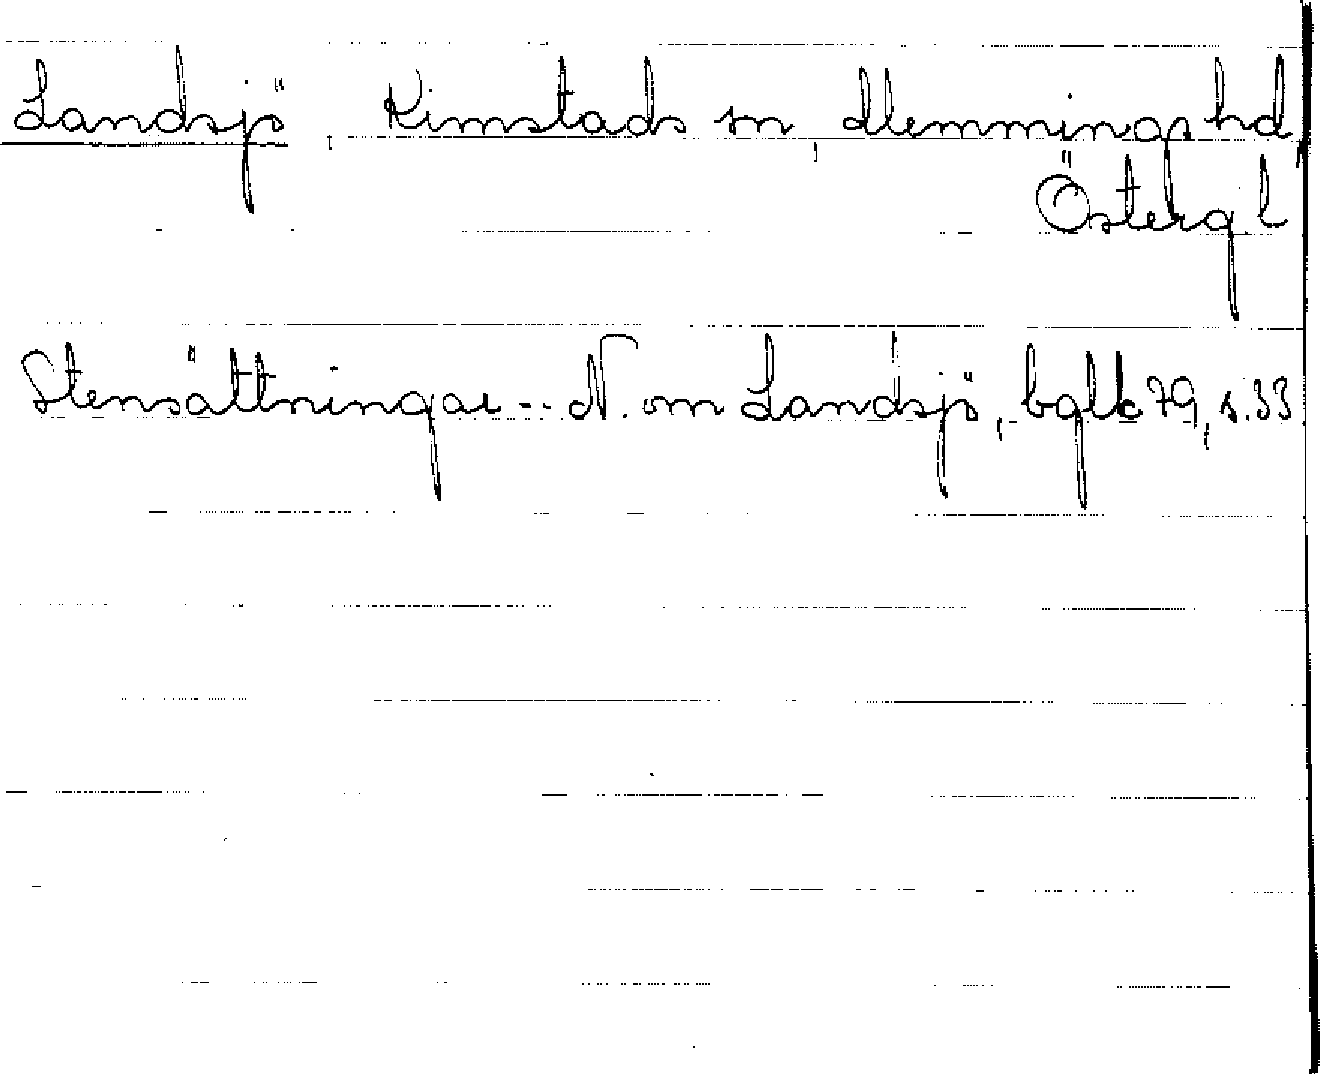 Landsjö, Kimstads sn, Memmings hd,
Österg l
Stensättningar -- N. om Landsjö, bglk 79, s. 33